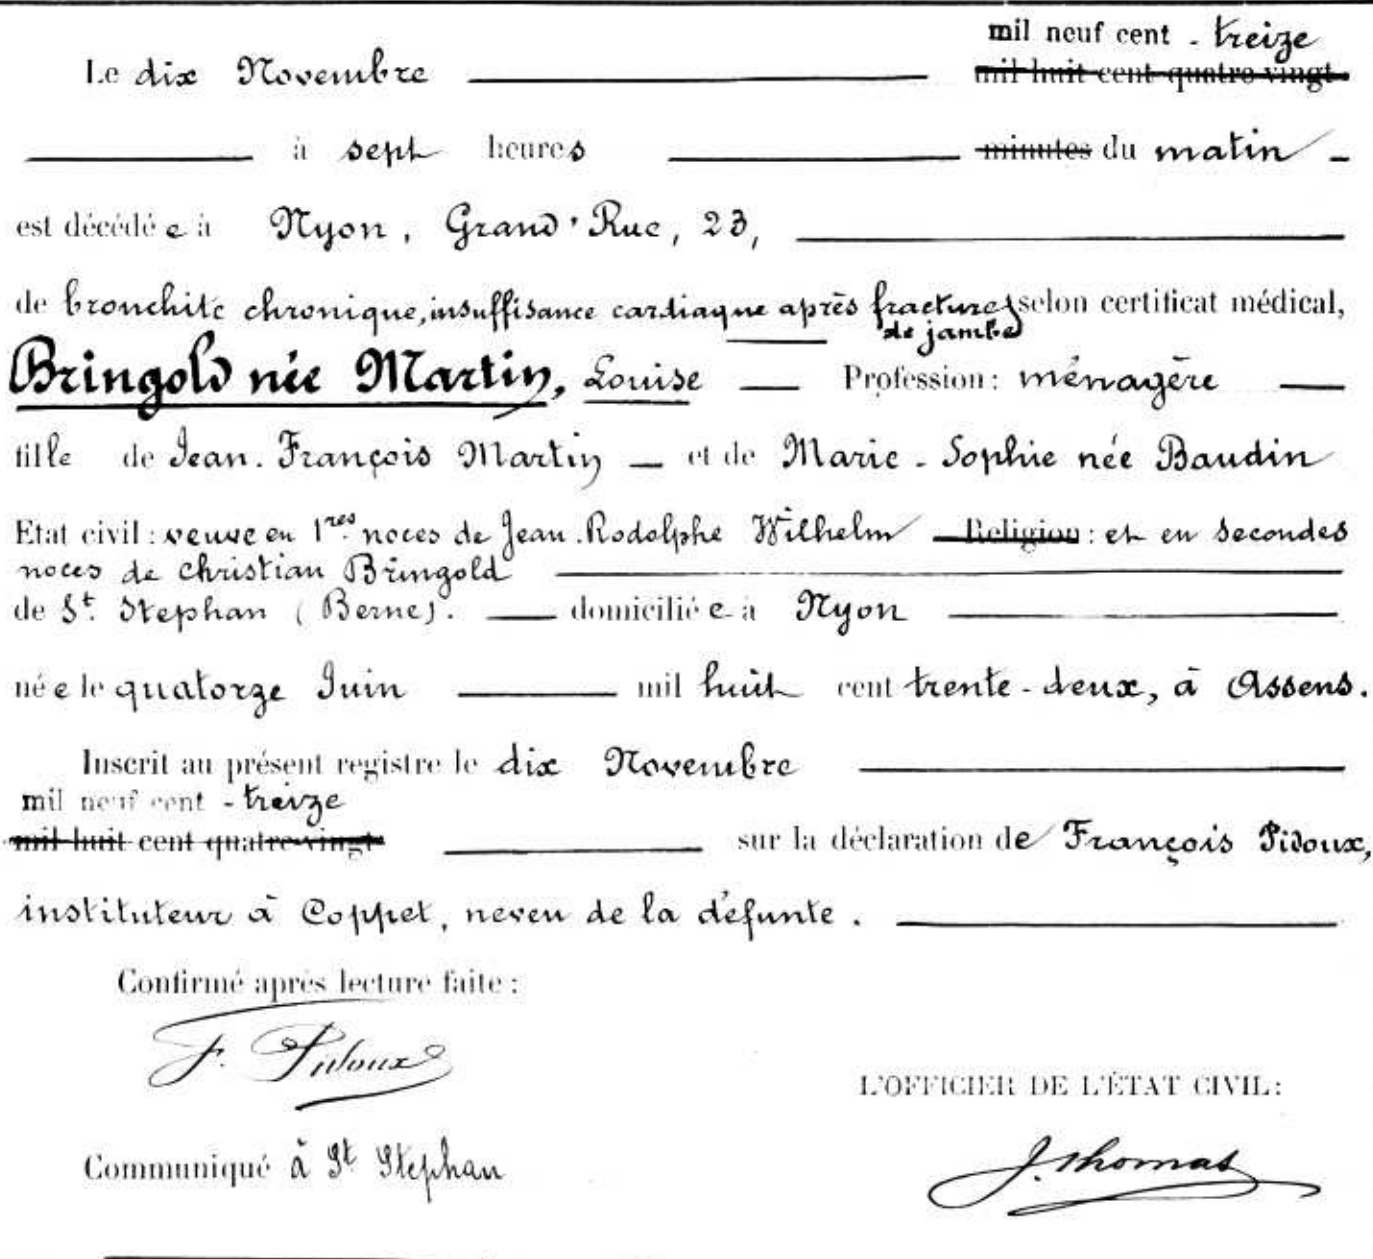 mil neuf cent - treize
Le dix Novembre mil huit cent quatre-vingt
à sept heures minutes du matin -
est décédée à Nyon, Grand'Rue, 23,
de bronchite chronique, insuffisance cardiaque après fracture selon certificat médical,
de jambe
Bringold née Martin, Louise Profession: ménagère
fille de Jean-François Martin et de Marie-Sophie née Baudin
Etat civil: veuve en 1res noces de Jean-Rodolphe Wilhelm Religion: et en secondes
noces de Christian Bringold
de St. Stephan (Berne). domiciliée à Nyon
née le quatorze Juin mil huit cent trente-deux, à Assens.
Inscrit au présent registre le dix Novembre
mil neuf cent - treize
mil huit cent quatre-vingt sur la déclaration de François Pidoux,
instituteur à Coppet, neveu de la défunte.
Confirmé après lecture faite:
F. Pidoux
L'OFFICIER DE L'ÉTAT CIVIL:
Communiqué à St Stephan
J. Thomas